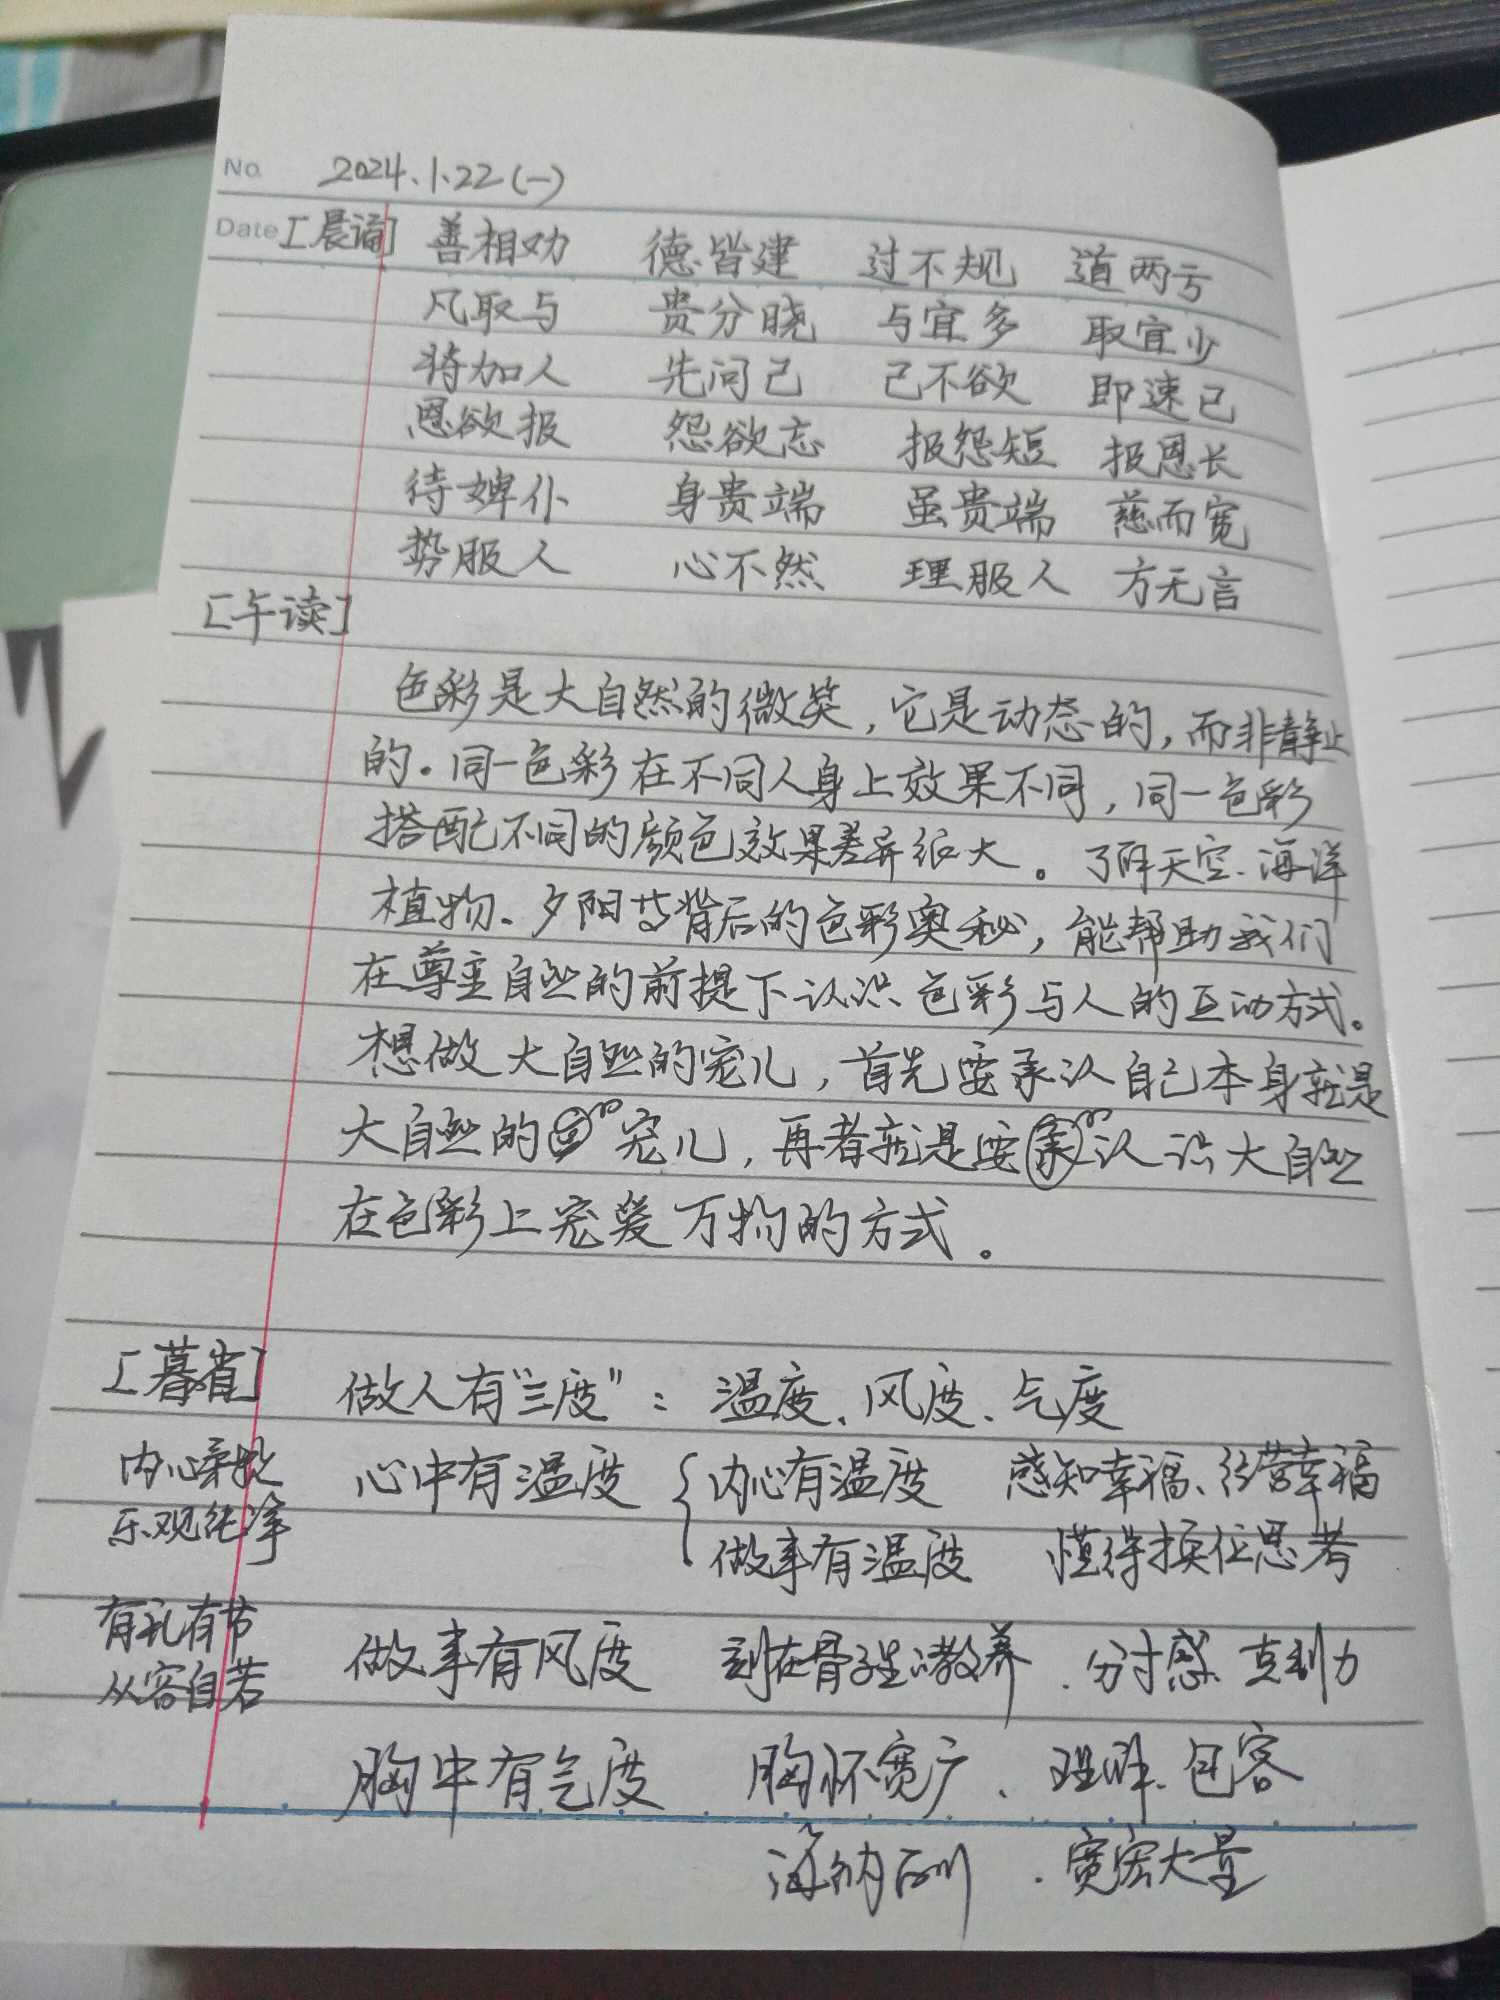 No. 2024.1.22(一)
Date [晨诵] 善相劝 德皆建 过不规 道两亏
凡取与 贵分晓 与宜多 取宜少
将加人 先问己 己不欲 即速已
恩欲报 怨欲忘 报怨短 报恩长
待婢仆 身贵端 虽贵端 慈而宽
势服人 心不然 理服人 方无言
[午读]
色彩是大自然的微笑，它是动态的，而非静止
的。同一色彩在不同人身上效果不同，同一色彩
搭配不同的颜色效果差异很大。了解天空、海洋
植物、夕阳等背后的色彩奥秘，能帮助我们
在尊重自然的前提下认识色彩与人的互动方式。
想做大自然的宠儿，首先要承认自己本身就是
大自然的宠儿，再者就是要认识大自然
在色彩上宠爱万物的方式。
[暮省] 做人有“三度”：温度、风度、气度
内心柔软 心中有温度 { 内心有温度 感知幸福、经营幸福
乐观纯净 做事有温度 懂得换位思考
有礼有节 做事有风度 刻在骨子里的教养、分寸感、克制力
从容自若
胸中有气度 胸怀宽广、理解、包容
海纳百川、宽宏大量